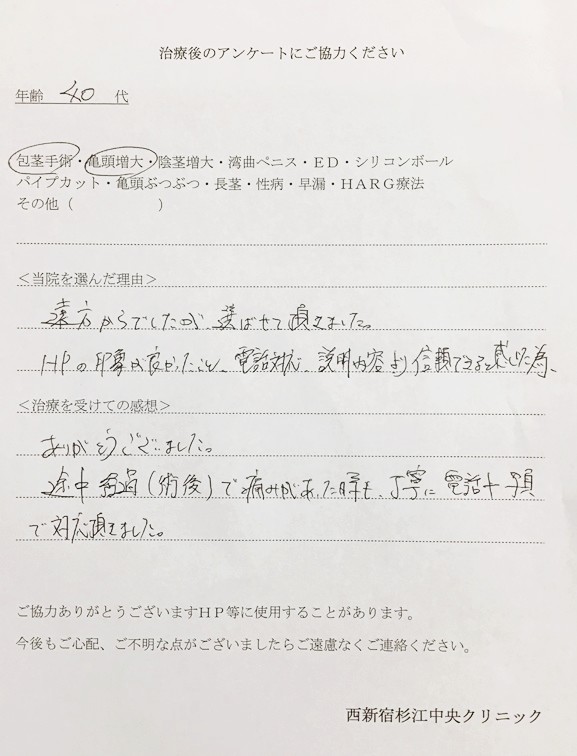 治療後のアンケートにご協力ください
年齢 40 代
包茎手術・亀頭増大・陰茎増大・湾曲ペニス・ED・シリコンボール
パイプカット・亀頭ぶつぶつ・長茎・性病・早漏・HARG療法
その他（　　　　　　）
＜当院を選んだ理由＞
遠方からでしたが、選ばせて頂きました。
HPの印象が良かったこと、電話対応、説明内容より信頼できると感じた為、
＜治療を受けての感想＞
ありがとうございました。
途中経過（術後）で痛みがあった時も、丁寧に電話
で対応頂きました。
ご協力ありがとうございますHP等に使用することがあります。
今後もご心配、ご不明な点がございましたらご遠慮なくご連絡ください。
西新宿杉江中央クリニック